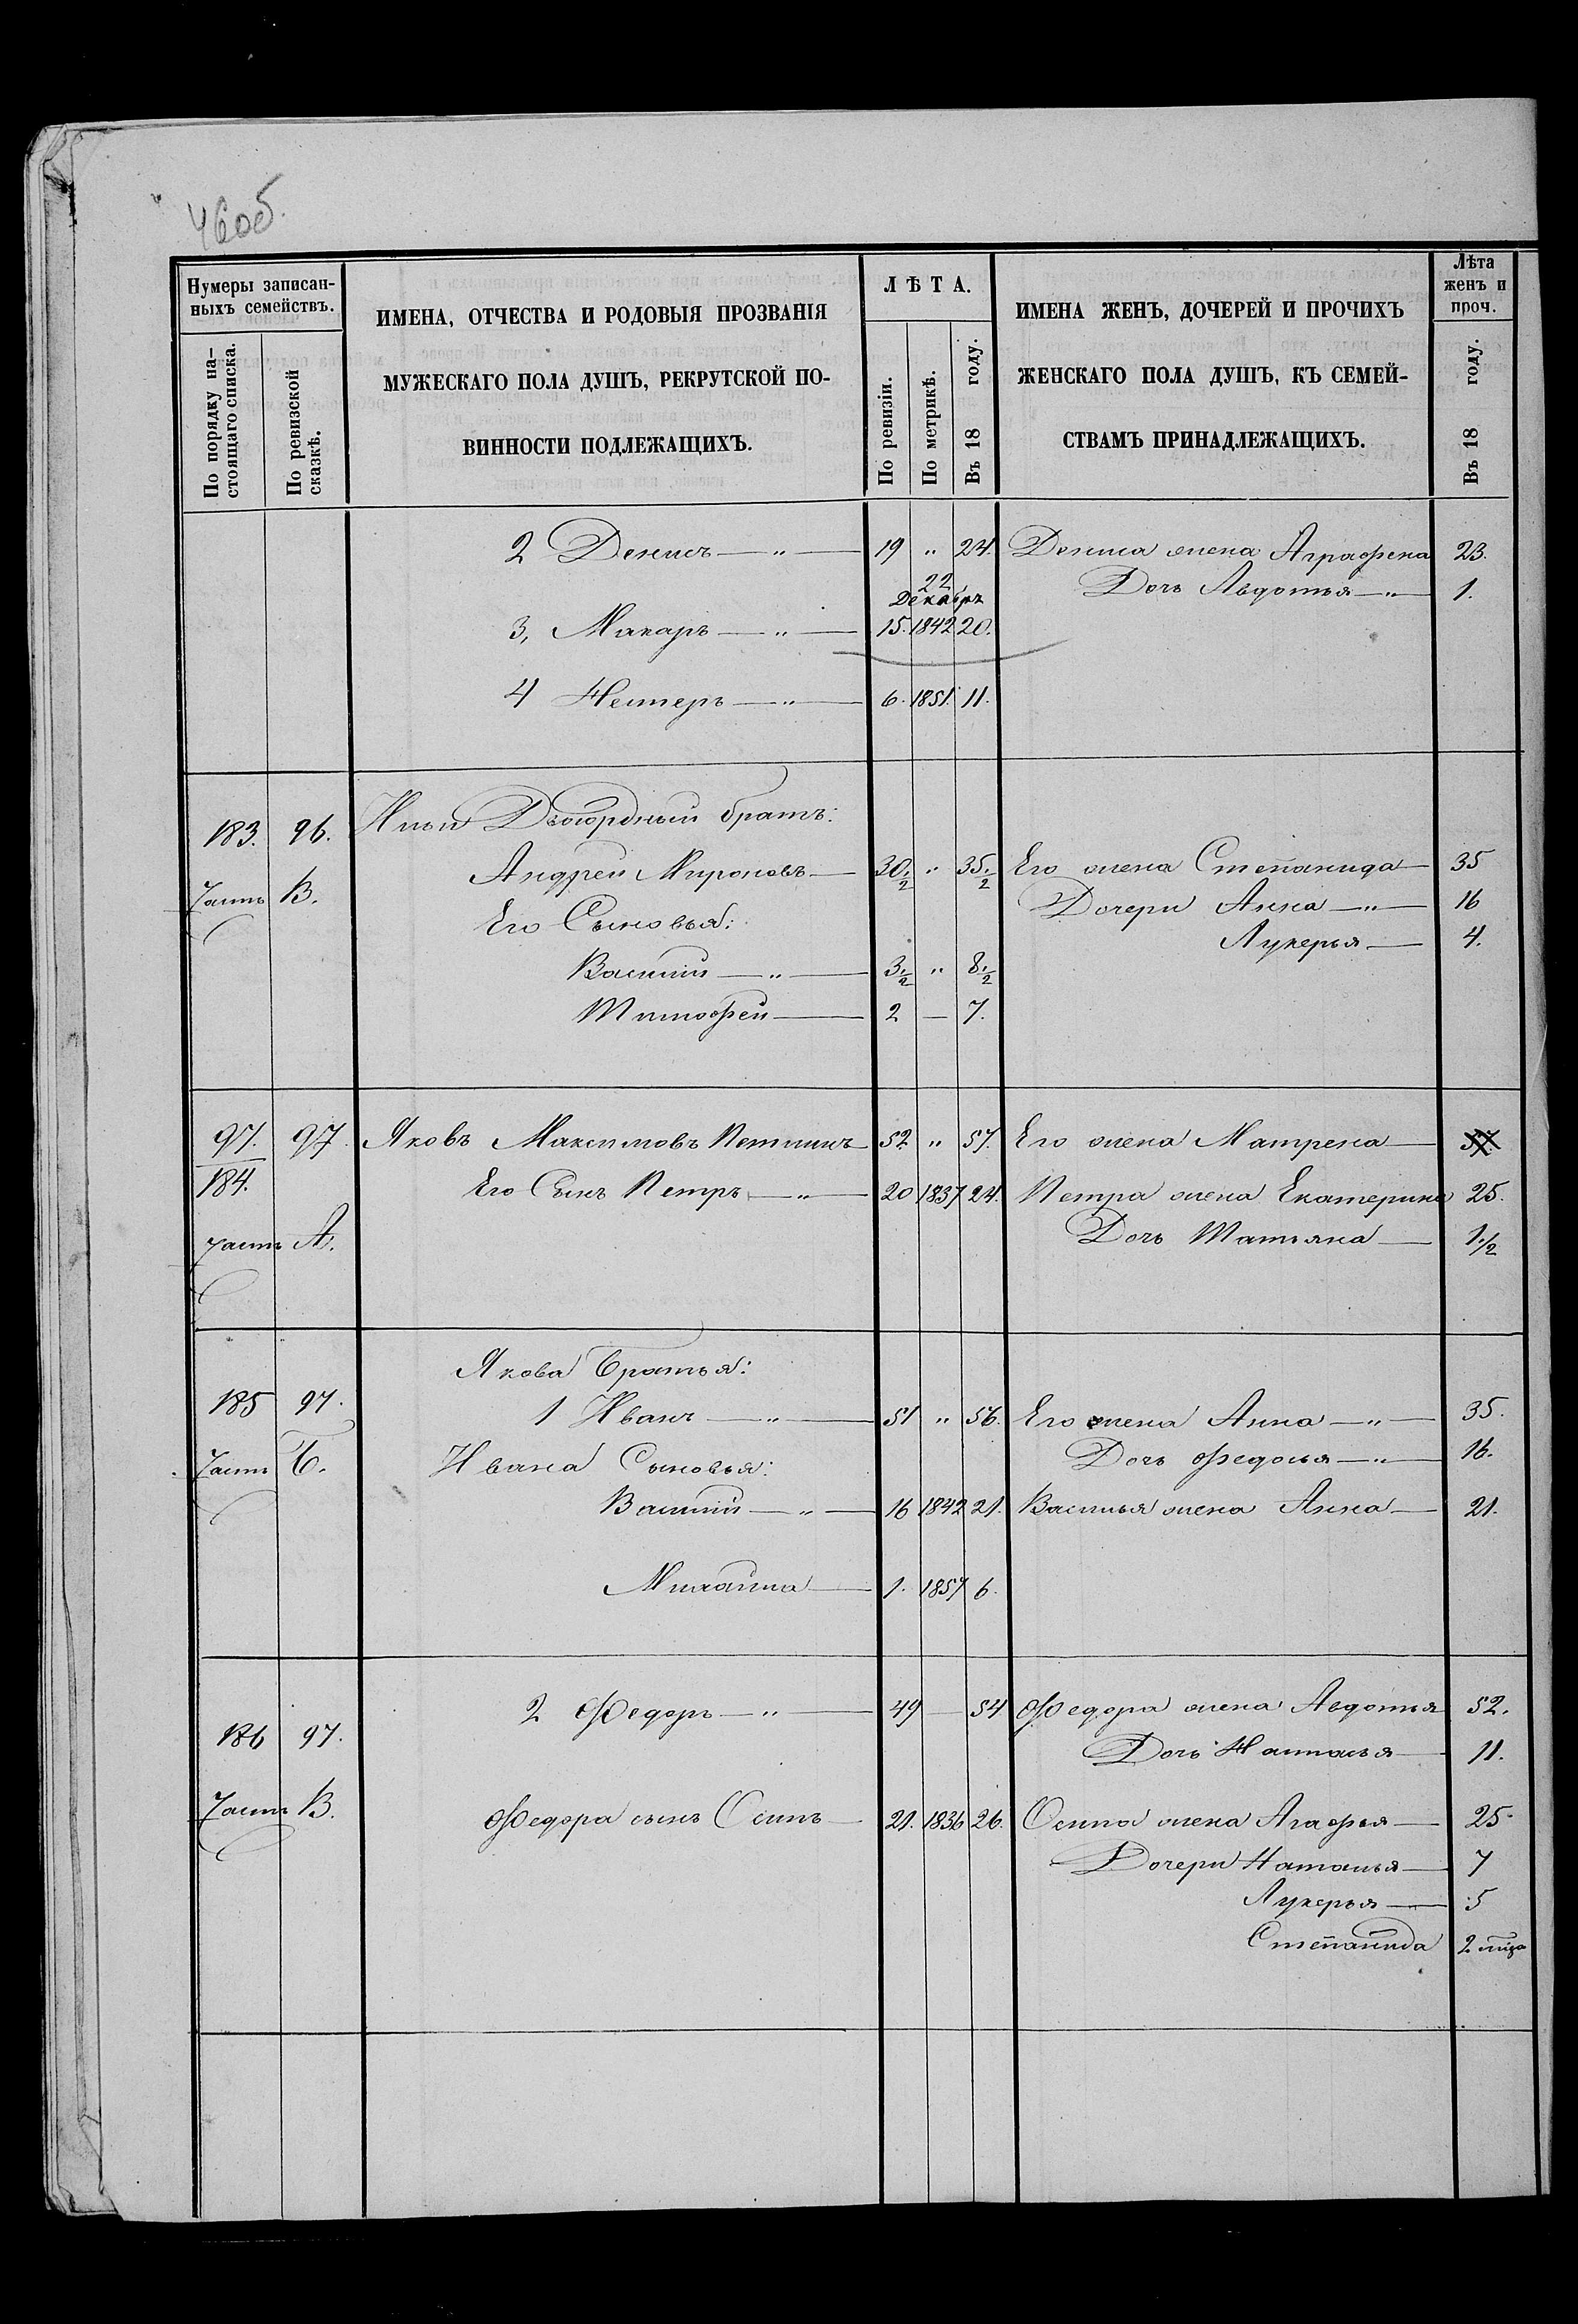 46об.
Нумеры записан-
ныхъ семействъ.
По порядку на-
стоящаго списка.
По ревизской
сказкѣ.
ИМЕНА, ОТЧЕСТВА И РОДОВЫЯ ПРОЗВАНІЯ
МУЖЕСКАГО ПОЛА ДУШЪ, РЕКРУТСКОЙ ПО-
ВИННОСТИ ПОДЛЕЖАЩИХЪ.
ЛѢТА.
По ревизіи.
По метрикѣ.
Въ 18 году.
ИМЕНА ЖЕНЪ, ДОЧЕРЕЙ И ПРОЧИХЪ
ЖЕНСКАГО ПОЛА ДУШЪ, КЪ СЕМЕЙ-
СТВАМЪ ПРИНАДЛЕЖАЩИХЪ.
Лѣта
женъ и
проч.
Въ 18 году.
2 Денисъ — " — 19 " 24. Дениса жена Аграфена 23.
Дочь Авдотья — " — 1.
22
Декабря
3, Макаръ — " — 15. 1842 20.
4 Нестеръ — " — 6. 1851. 11.
183. 96. Двоюродный братъ:
Андрей Мироновъ — 30.½ " 35.½ Его жена Степанида — 35
Часть В. Дочери Анна — " — 16
Его Сыновья:
Лукерья — 4.
Василій — " — 3.½ " 8.½
Тимофей — 2 — 7.
97. 97. Яковъ Максимовъ 52 " 57. Его жена Матрена — 57
184. Его Сынъ Петръ — " — 20 1837 24. Петра жена Екатерина 25.
Часть А. Дочь Татьяна — 1.½
Якова Братья:
185 97. 1 Иванъ — " — 51 " 56. Его жена Анна — " — 35.
Часть Б. Ивана Сыновья: Дочь Федосья — " — 16.
Василій — " — 16 1842 21. Василья жена Анна — 21.
Михаила — 1. 1857 6.
2 Федоръ — " — 49 — 54 Федора жена Авдотья 52.
186 97. Дочь Настасья — 11.
Часть В. Федора сынъ Осипъ — 21. 1836 26. Осипа жена Агафья — 25.
Дочери Наталья — 7
Лукерья — 5
Степанида 2